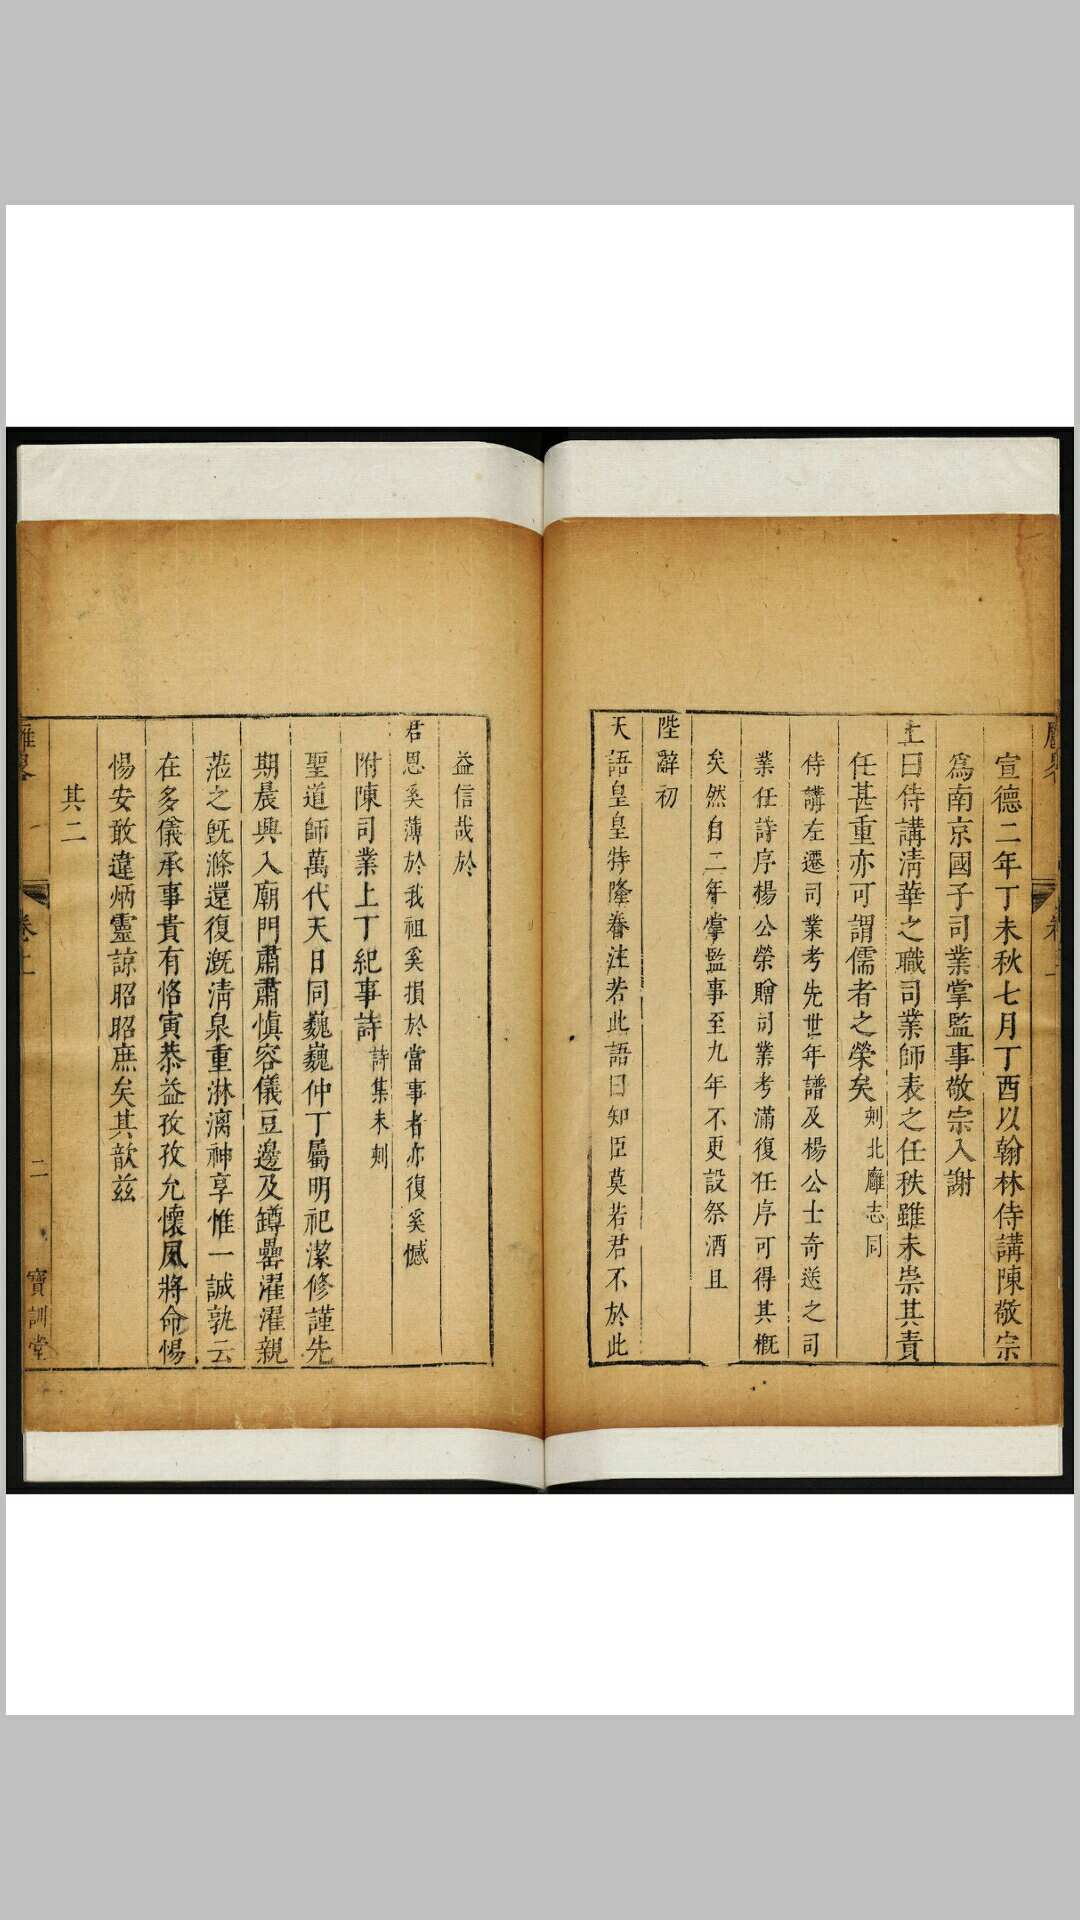 宣德二年丁未秋七月丁酉以翰林侍講陳敬宗
爲南京國子司業掌監事敬宗入謝
上曰侍講清華之職司業師表之任秩雖未崇其責
任甚重亦可謂儒者之榮矣刾北廱志同
侍講左遷司業考先世年譜及楊公士奇送之司
業任詩序楊公榮贈司業考滿復任序可得其槪
矣然自二年掌監事至九年不更設祭酒且
陛辭初
天語皇皇特隆眷注若此語曰知臣莫若君不於此
益信哉於
君恩奚薄於我祖奚損於當事者亦復奚憾
附陳司業上丁紀事詩詩集未刾
聖道師萬代天日同巍巍仲丁屬明祀潔修謹先
期晨興入廟門肅肅愼容儀豆邊及罇罍濯濯親
蒞之旣滌還復漑清泉重淋漓神享惟一誠孰云
在多儀承事貴有恪寅恭益孜孜允懷夙將命惕
惕安敢違炳靈諒昭昭庶矣其歆兹
其二
卷上
二
寶訓堂